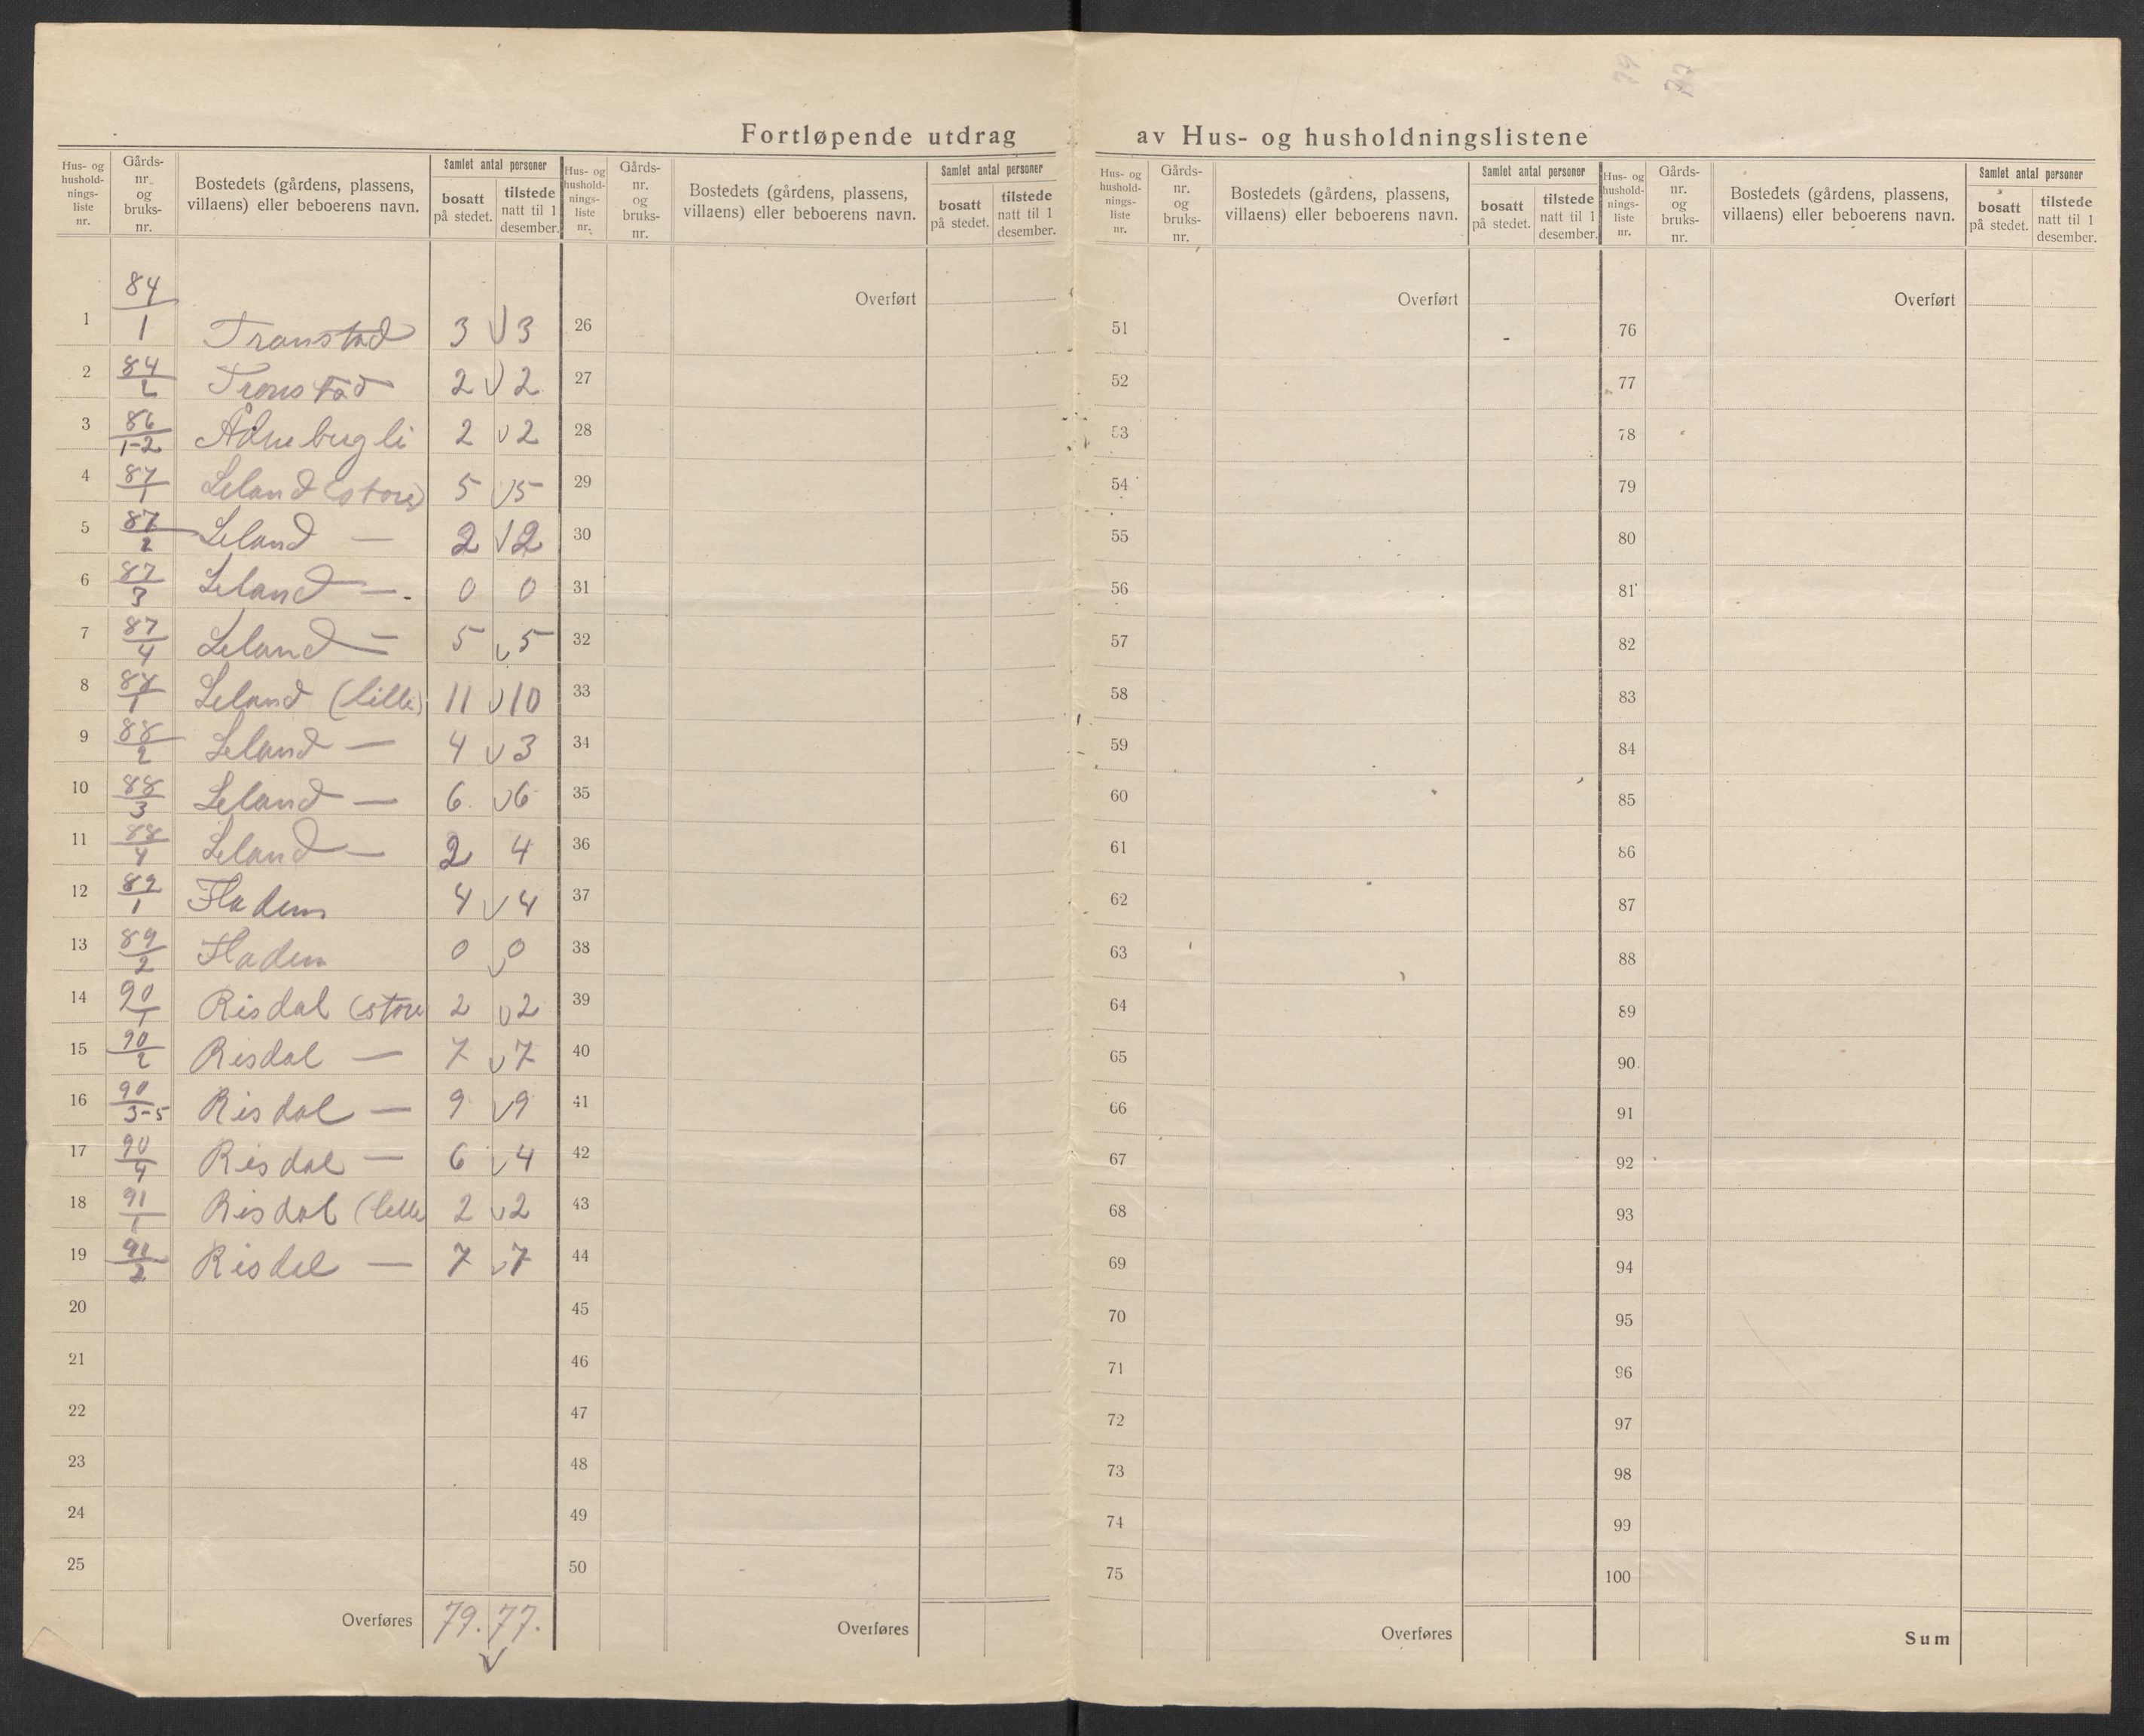 79 77
Fortløpende utdrag av Hus- og husholdningslistene
Hus- og hushold- nings- liste nr. | Gårds- nr. og bruks- nr. | Bostedets (gårdens, plassens, villaens) eller beboerens navn. | Samlet antal personer | bosatt på stedet. | tilstede natt til 1 desember.
Hus- og hushold- nings- liste nr. | Gårds- nr. og bruks- nr. | Bostedets (gårdens, plassens, villaens) eller beboerens navn. | Samlet antal personer | bosatt på stedet. | tilstede natt til 1 desember.
Hus- og hushold- nings- liste nr. | Gårds- nr. og bruks- nr. | Bostedets (gårdens, plassens, villaens) eller beboerens navn. | Samlet antal personer | bosatt på stedet. | tilstede natt til 1 desember.
Hus- og hushold- nings- liste nr. | Gårds- nr. og bruks- nr. | Bostedets (gårdens, plassens, villaens) eller beboerens navn. | Samlet antal personer | bosatt på stedet. | tilstede natt til 1 desember.
Overført Overført Overført
1 84/1 Tronstad 3 V 3 26 51 76
2 84/2 Tronstad 2 V 2 27 52 77
3 86/1-2 Ådnebergli 2 v 2 28 53 78
4 87/1 Leland (store) 5 V 5 29 54 79
5 87/2 Leland — 2 V 2 30 55 80
6 87/3 Leland —. 0 0 31 56 81
7 87/4 Leland — 5 v 5 32 57 82
8 88/1 Leland (lille) 11 v 10 33 58 83
9 88/2 Leland — 4 v 3 34 59 84
10 88/3 Leland — 6 v 6 35 60 85
11 88/4 Leland — 2 4 36 61 86
12 89/1 Fladem 4 v 4 37 62 87
13 89/2 Fladem 0 v 0 38 63 88
14 90/1 Risdal (store 2 v 2 39 64 89
15 90/2 Risdal — 7 v 7 40 65 90
16 90/3-5 Risdal — 9 v 9 41 66 91
17 90/4 Risdal — 6 v 4 42 67 92
18 91/1 Risdal (lille 2 v 2 43 68 93
19 91/2 Risdal — 7 v 7 44 69 94
20 45 70 95
21 46 71 96
22 47 72 97
23 48 73 98
24 49 74 99
25 50 75 100
Overføres 79. 77. Overføres Overføres Sum
V